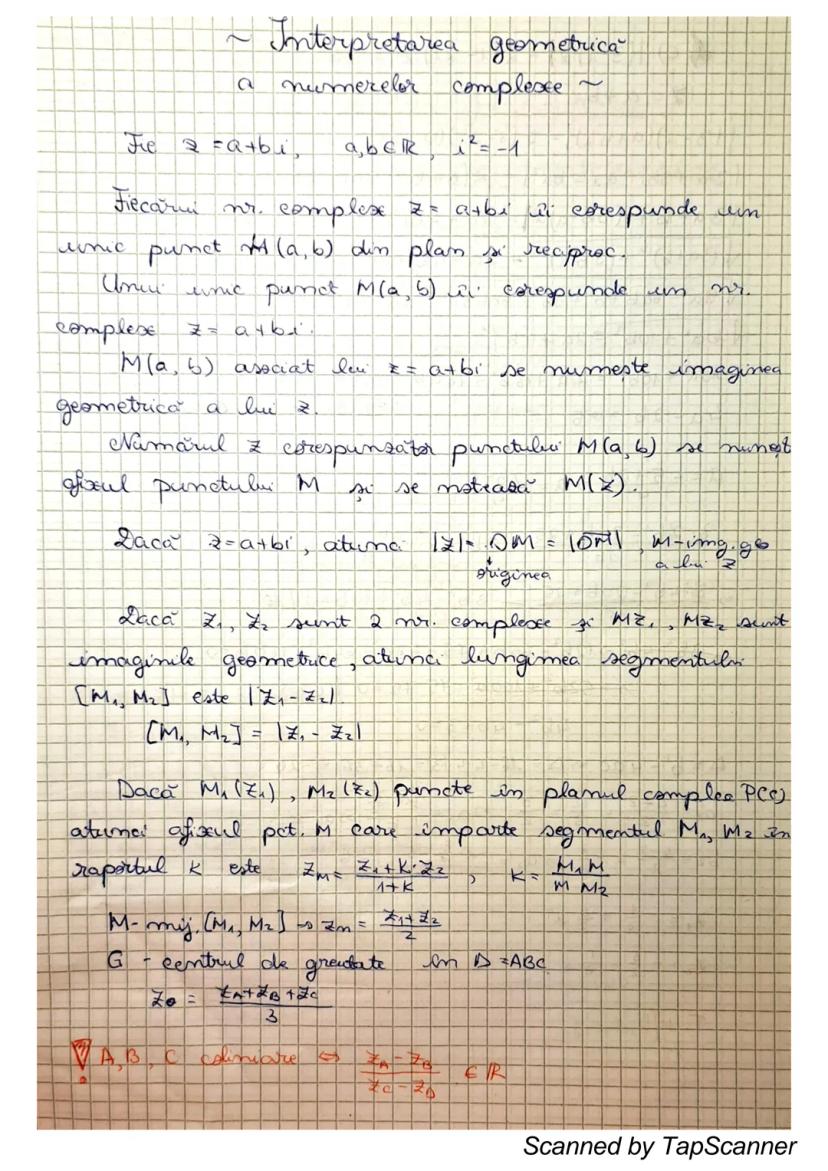 ~ Interpretarea geometrică
a numerelor complexe ~
Fie z = a+bi, a,b ∈ ℝ, i² = -1
Fiecărui nr. complex z = a+bi îi corespunde un
unic punct M(a, b) din plan și reciproc.
Unui unic punct M(a, b) îi corespunde un nr.
complex z = a+bi.
M(a, b) asociat lui z = a+bi se numește imaginea
geometrică a lui z.
Numărul z corespunzător punctului M(a, b) se numeșt
afixul punctului M și se notează M(z).
Dacă z=a+bi, atunci |z| = OM = |OM|, M-img. geo
originea a lui z
Dacă z₁, z₂ sunt 2 nr. complexe și Mz₁, Mz₂ sunt
imaginile geometrice, atunci lungimea segmentului
[M₁, M₂] este |z₁ - z₂|.
[M₁, M₂] = |z₁ - z₂|
Dacă M₁(z₁), M₂(z₂) puncte în planul complex P(C)
atunci afixul pct. M care împarte segmentul M₁, M₂ în
raportul k este z_M = (z₁ + k·z₂)/(1+k), k = (M₁M)/(M M₂)
M - mij. [M₁, M₂] → z_m = (z₁+z₂)/2
G - centrul de greutate în Δ =ABC
z_G = (z_A+z_B+z_C)/3
! A, B, C coliniare ⇔ (z_A - z_B)/(z_C - z_D) ∈ ℝ
Scanned by TapScanner